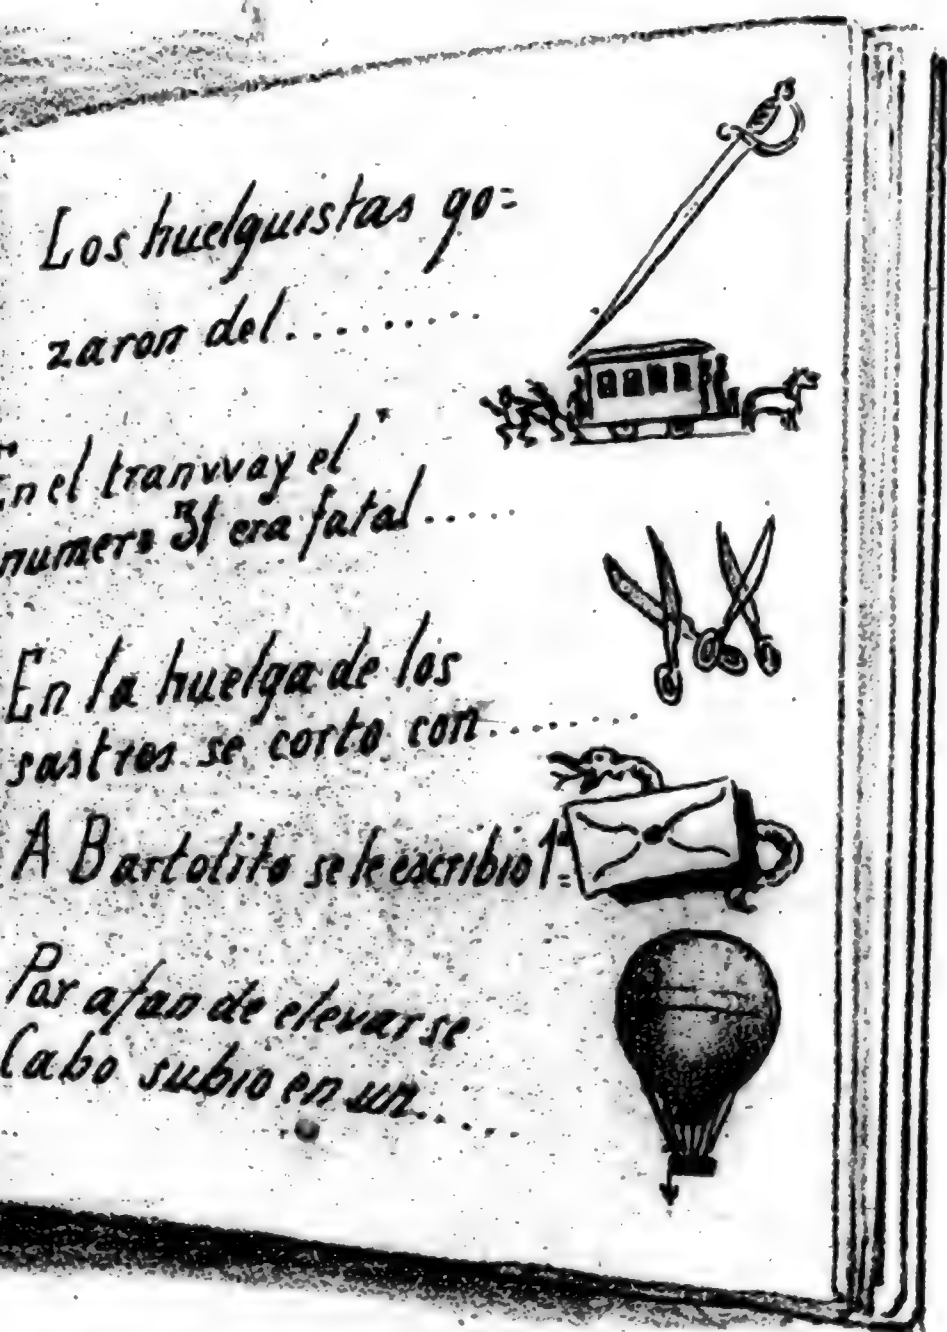 Los huelguistas go=
zaron del.........
En el tranvvay el
numero 31 era fatal.....
En la huelga de los
sastres se corto con........
A Bartolito se le escribio 1=
Por afan de elevarse
Cabo subio en un.....